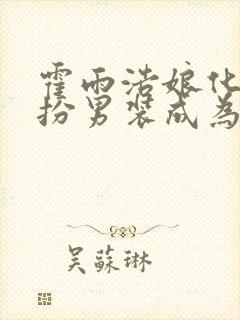 霍雨浩娘化
扮男裝成為
吳蘇琳